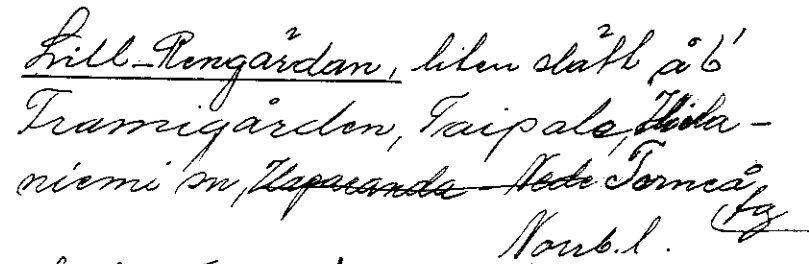 Lill-Rengårdan, liten slätt å b'
Tramigården, Taipale, Hieta-
niemi sn, Haparanda - Nede Torneå
fg
Norrb.l.